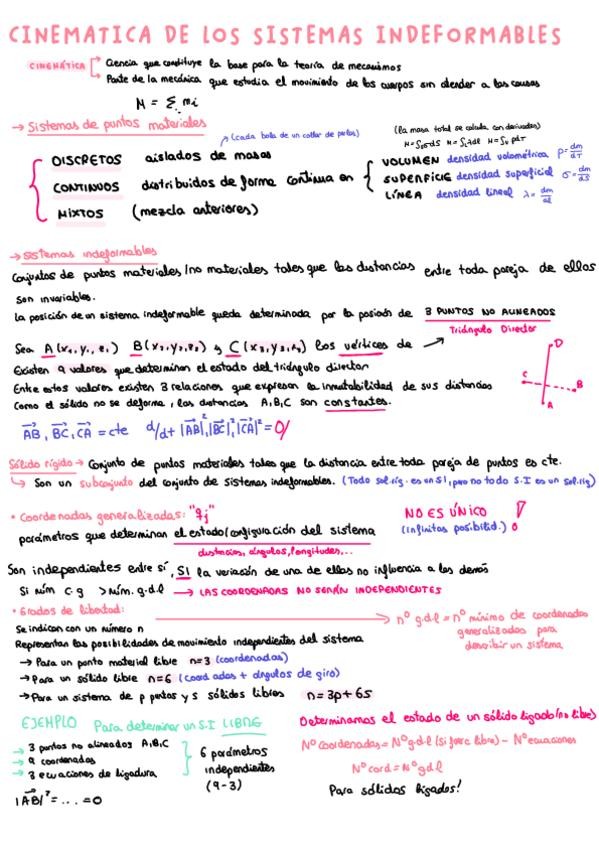 CINEMATICA DE LOS SISTEMAS INDEFORMABLES
CINEMÁTICA
Ciencia que constituye la base para la teoría de mecanismos
Parte de la mecánica que estudia el movimiento de los cuerpos sin atender a las causas
M = Σ mi
→ Sistemas de puntos materiales
(cada bola de un collar de perlas)
(la masa total se calcula con derivadas)
DISCRETOS aislados de masas
CONTINUOS distribuidos de forma continua en
MIXTOS (mezcla anteriores)
VOLUMEN densidad volumétrica ρ = dm/dτ
SUPERFICIE densidad superficial σ = dm/ds
LÍNEA densidad lineal λ = dm/dl
→ Sistemas indeformables
Conjuntos de puntos materiales/no materiales tales que las distancias entre toda pareja de ellos
son invariables.
La posición de un sistema indeformable queda determinada por la posición de 3 PUNTOS NO ALINEADOS
Triángulo Director
Sea A(x₁, y₁, z₁) B(x₂, y₂, z₂) y C(x₃, y₃, z₃) los vértices de
Existen 9 valores que determinan el estado del triángulo director
Entre estos valores existen 3 relaciones que expresan la inmutabilidad de sus distancias
Como el sólido no se deforma, las distancias A,B,C son constantes.
D
C
B
A
AB, BC, CA = cte d/dt |AB|², |BC|², |CA|² = 0
Sólido rígido → Conjunto de puntos materiales tales que la distancia entre toda pareja de puntos es cte.
↳ Son un subconjunto del conjunto de sistemas indeformables. (Todo sol.ríg. es un SI, pero no todo S.I es un sol.ríg)
• Coordenadas generalizadas: "qj"
NO ES ÚNICO
(infinitas posibilid.)
parámetros que determinan el estado/configuración del sistema
distancias, ángulos, longitudes,...
Son independientes entre sí, SI la variación de una de ellas no influencia a las demás
Si núm c.g > núm. g.d.l → LAS COORDENADAS NO SERÁN INDEPENDIENTES
• Grados de libertad:
→ nº g.d.l = nº mínimo de coordenadas
generalizadas para
describir un sistema
Se indican con un número n
Representan las posibilidades de movimiento independientes del sistema
→ Para un punto material libre n=3 (coordenadas)
→ Para un sólido libre n=6 (coord adas + ángulos de giro)
→ Para un sistema de p puntos y s sólidos libres n = 3p + 6s
EJEMPLO Para determinar un S.I LIBRE
→ 3 puntos no alineados A,B,C
→ 9 coordenadas
→ 3 ecuaciones de ligadura
|AB|² = ... = 0
6 parámetros
independientes
(9-3)
Determinamos el estado de un sólido ligado (no libre)
Nº coordenadas = Nº g.d.l (si fuese libre) - Nº ecuaciones
Nº coord = Nº g.d.l
Para sólidos ligados!